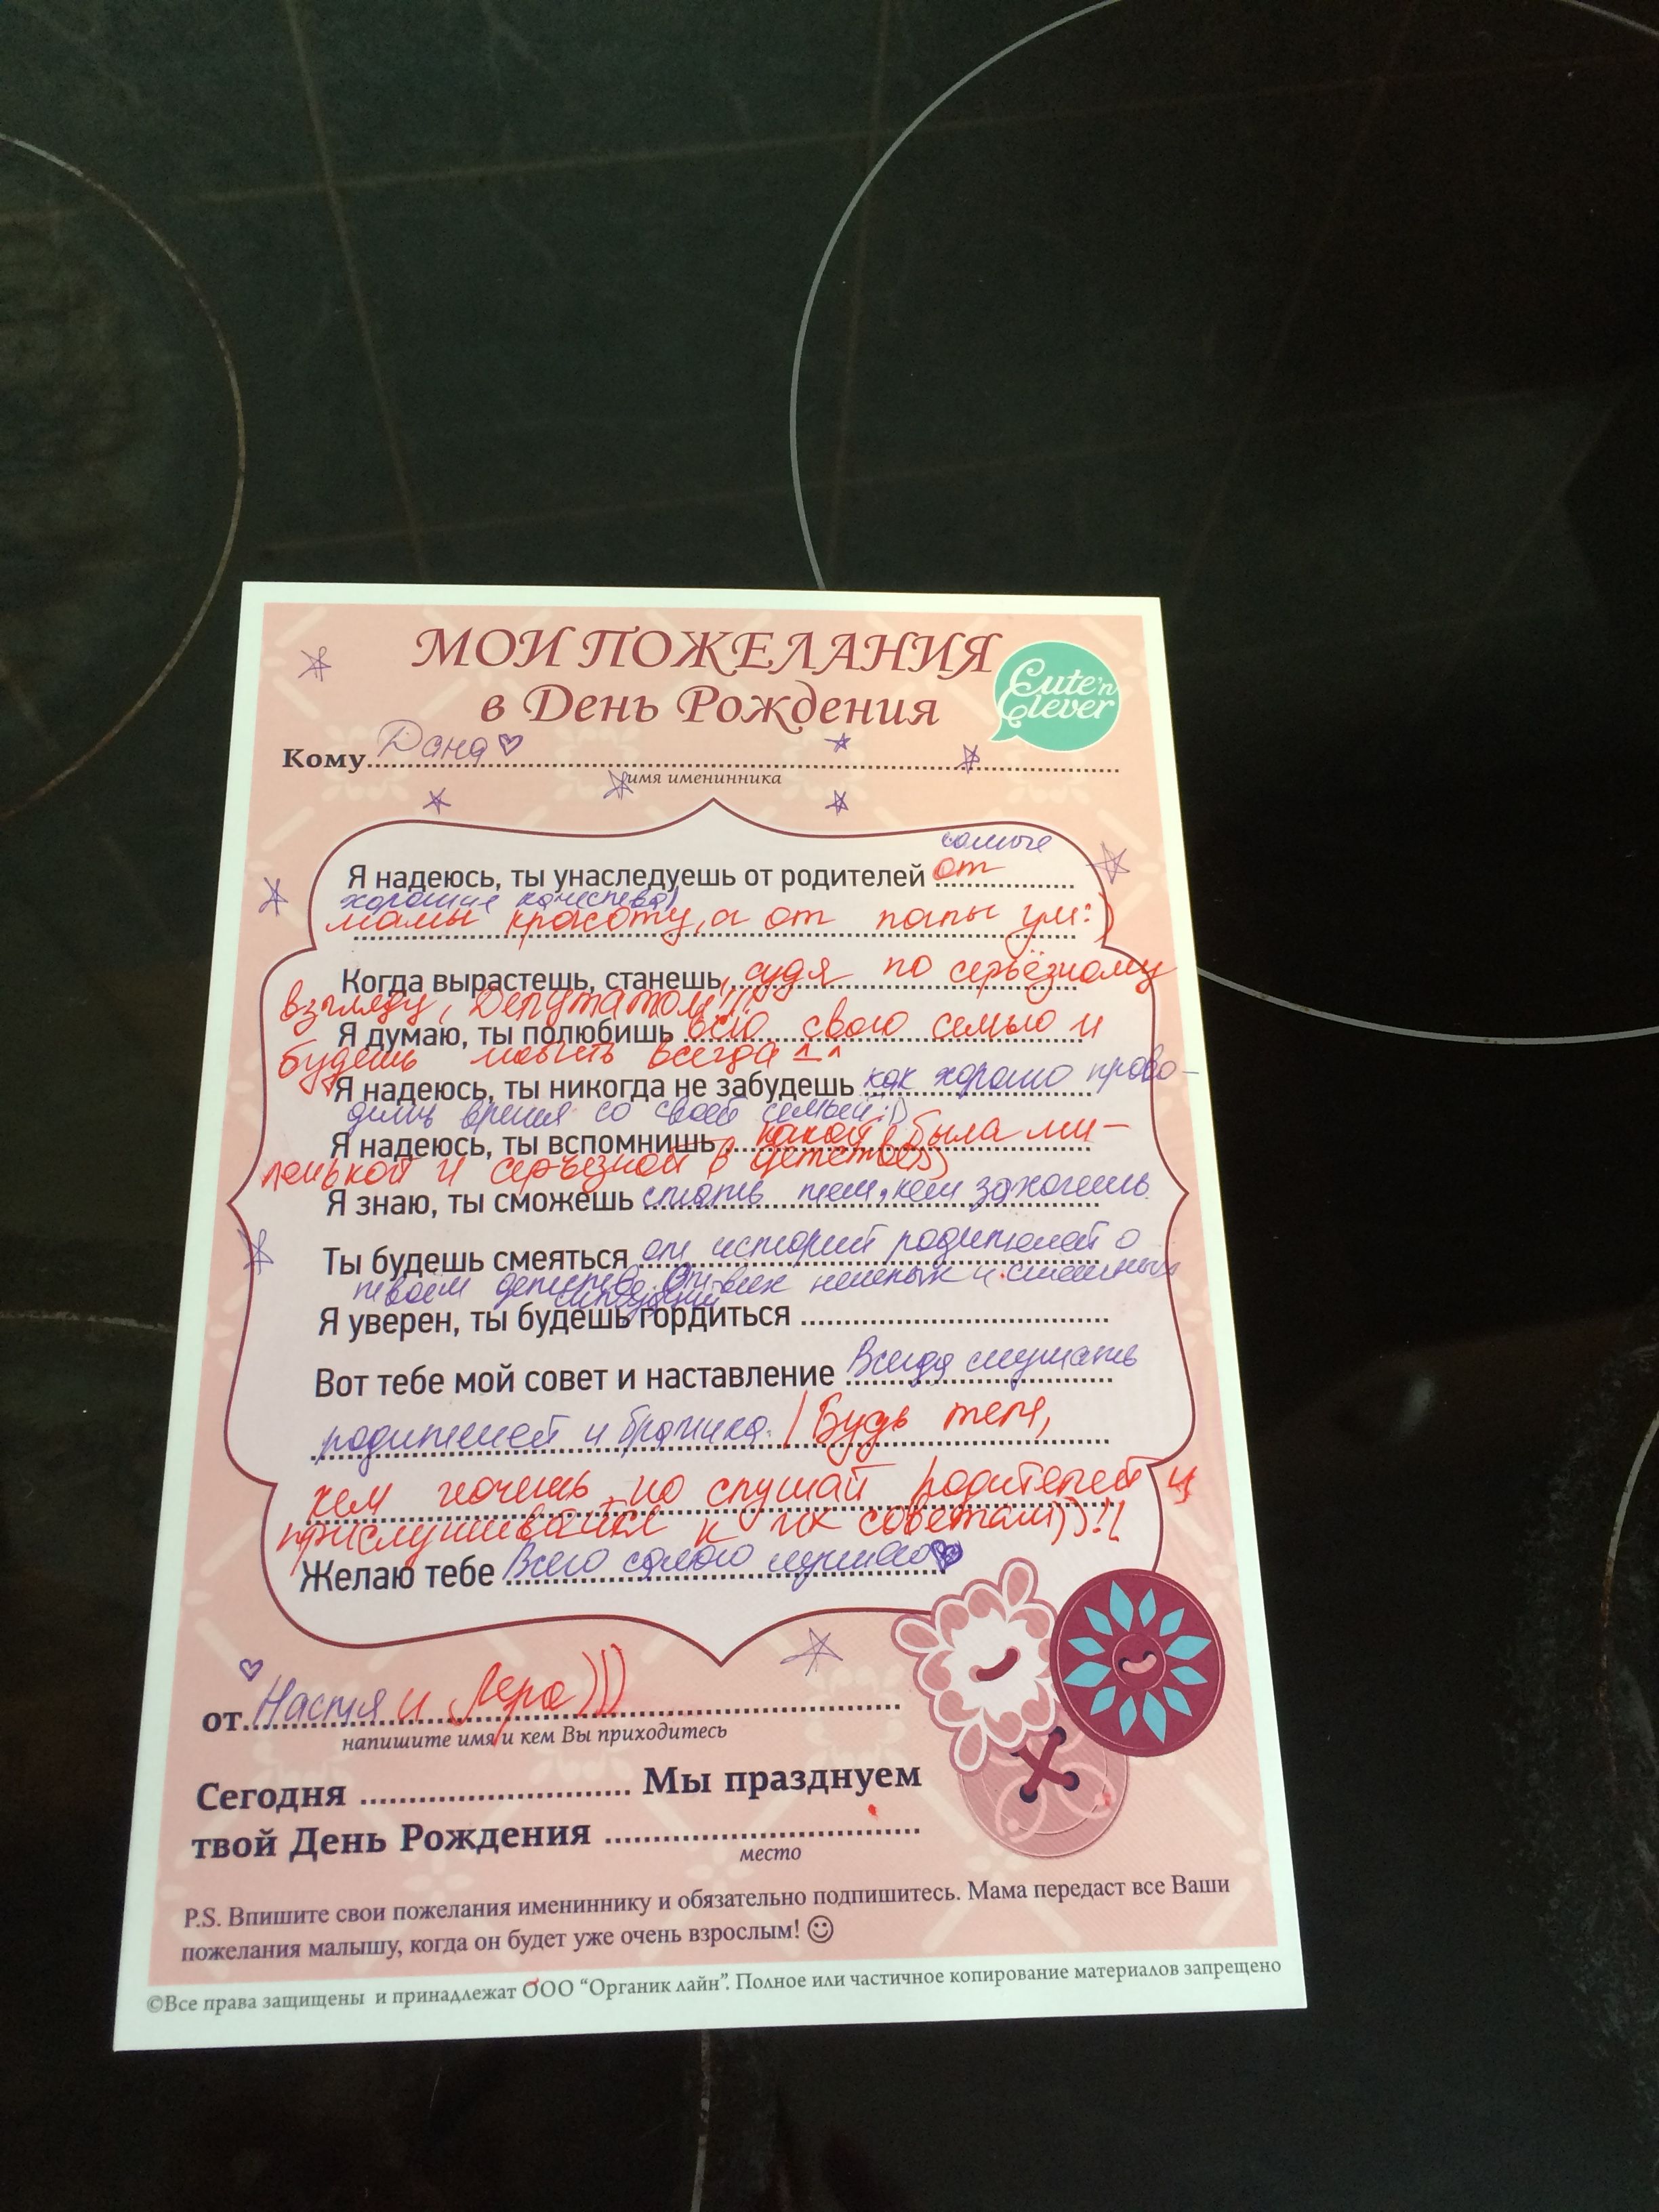 МОИ ПОЖЕЛАНИЯ
в День Рождения
Cute'n
Clever
Кому Дана
имя именинника
самые
Я надеюсь, ты унаследуешь от родителей от
хорошие качества)
мамы красоту, а от папы ум:)
Когда вырастешь, станешь, судя по серьёзному
взгляду, Депутатом!!!
Я думаю, ты полюбишь всю свою семью и
будешь любить всегда ^_^
Я надеюсь, ты никогда не забудешь как хорошо прово-
дишь время со своей семьёй:D
Я надеюсь, ты вспомнишь какой была ми-
ленькой и серьёзной в детстве))
Я знаю, ты сможешь стать тем, кем захочешь.
Ты будешь смеяться от историй родителей о
твоём детстве. От всех нелепых и смешных
ситуаций
Я уверен, ты будешь гордиться
Вот тебе мой совет и наставление Всегда слушать
родителей и братика. / Будь тем,
кем хочешь, но слушай родителей и
прислушивайся к их советам))!!
Желаю тебе Всего самого лучшего
от Настя и Лера)))
напишите имя и кем Вы приходитесь
Сегодня Мы празднуем
твой День Рождения
место
P.S. Впишите свои пожелания имениннику и обязательно подпишитесь. Мама передаст все Ваши
пожелания малышу, когда он будет уже очень взрослым! ☺
©Все права защищены и принадлежат ООО "Органик лайн". Полное или частичное копирование материалов запрещено